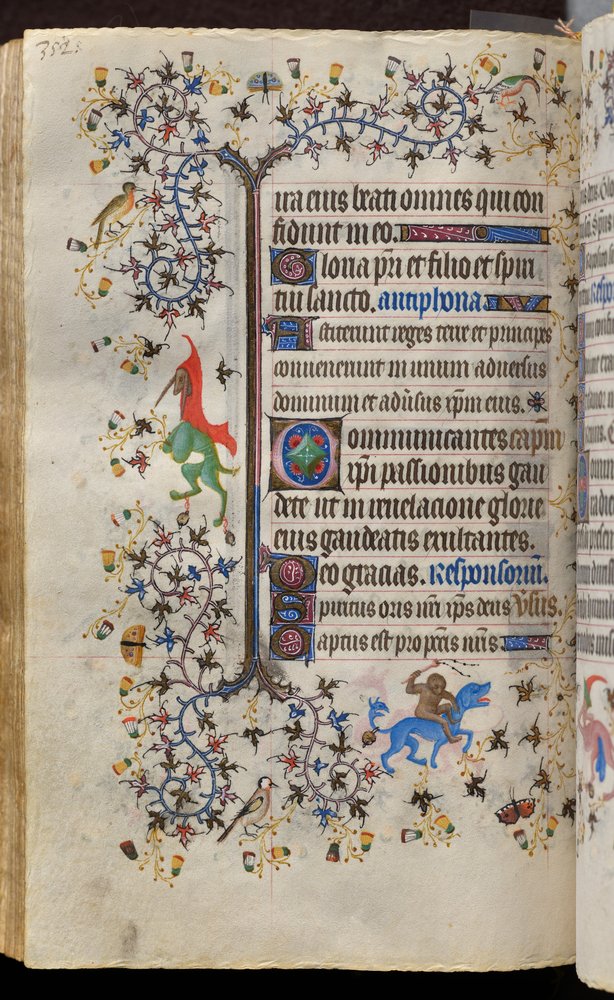 352
ira eius beati omnes qui con
fidunt in eo.
Gloria p̄ri et filio et spiri
tui sancto. antiphona.
Astiterunt reges terre et principes
convenerunt in unum adversus
dominum et adūsus xp̄m eius.
Communicantes
xp̄i passionibus gau
dete ut in revelacione glorie
eius gaudeatis exultantes.
Deo gracias. Responsoriū.
Spiritus oris nr̄i xp̄s deus
Captus est pro p̄ccīs nr̄is